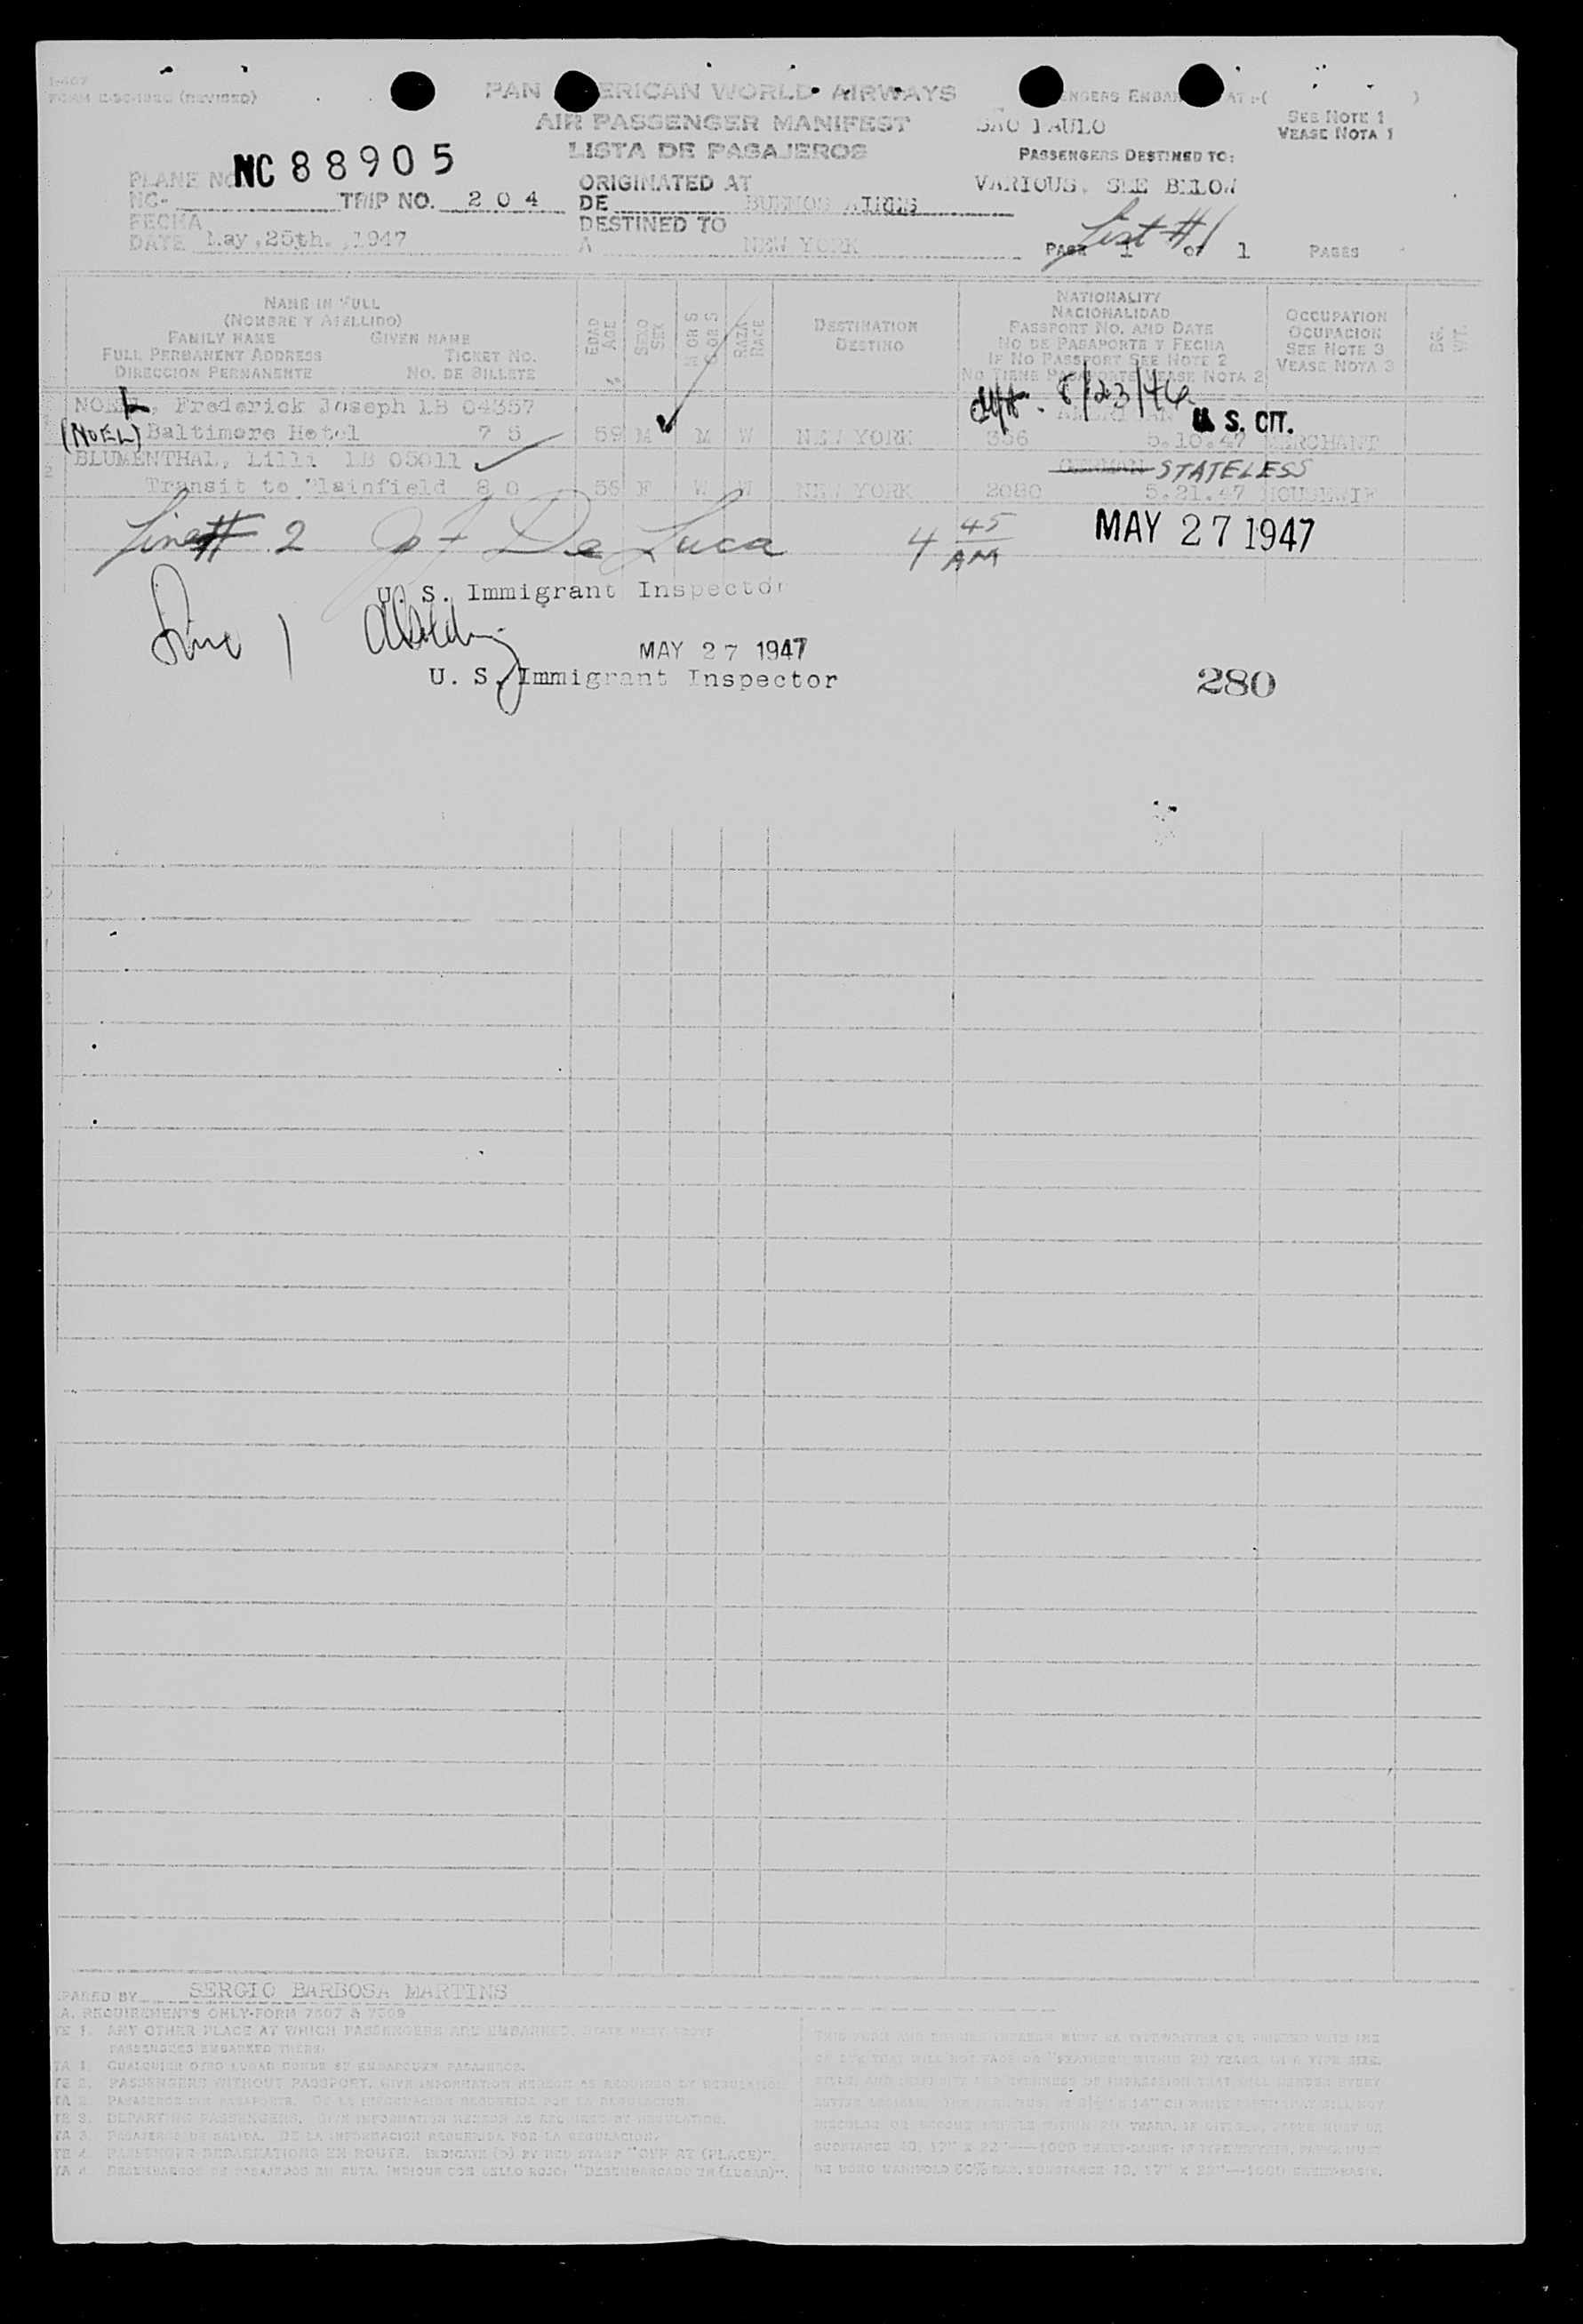 I-467
FORM (REVISED)
PAN AMERICAN WORLD AIRWAYS
AIR PASSENGER MANIFEST
LISTA DE PASAJEROS
SAO PAULO
SEE NOTE 1
VEASE NOTA 1
PASSENGERS DESTINED TO:
VARIOUS, SEE BELOW
PLANE NO NC 88905
NC- TRIP NO. 204
ORIGINATED AT
DE BUENOS AIRES
FECHA
DATE May,25th.,1947
DESTINED TO
A NEW YORK
List #1
PAGE 1 OF 1 PAGES
NAME IN FULL
(NOMBRE Y APELLIDO)
FAMILY NAME GIVEN NAME
FULL PERMANENT ADDRESS TICKET NO.
DIRECCION PERMANENTE NO. DE BILLETE
EDAD
AGE
SEXO
SEX
M OR S
C OR S
RAZA
RACE
DESTINATION
DESTINO
NATIONALITY
NACIONALIDAD
PASSPORT NO. AND DATE
NO DE PASAPORTE Y FECHA
IF NO PASSPORT SEE NOTE 2
NO TIENE PASAPORTE VEASE NOTA 2
OCCUPATION
OCUPACION
SEE NOTE 3
VEASE NOTA 3
8/23/46
NOEL, Frederick Joseph LB 04357 AMERICAN U.S. CIT.
(NOEL) Baltimore Hotel 7 5 59 M M W NEW YORK 336 5.10.47 MERCHANT
BLUMENTHAL, Lilli LB 05011 GERMAN STATELESS
Transit to Plainfield 8 0 56 F W W NEW YORK 2080 5.21.47 HOUSEWIF
Line # 2 De Luca 4 45 AM MAY 27 1947
U. S. Immigrant Inspector
Line 1
MAY 27 1947
U. S. Immigrant Inspector
280
PARED BY SERGIO BARBOSA MARTINS
A. REQUIREMENTS ONLY-FORM 7507 & 7509
TE 1. ANY OTHER PLACE AT WHICH PASSENGERS ARE EMBARKED, STATE NEXT ABOVE
PASSENGERS EMBARKED THERE.
TA 1. CUALQUIER OTRO LUGAR DONDE SE EMBARQUEN PASAJEROS.
TE 2. PASSENGERS WITHOUT PASSPORT, GIVE INFORMATION HEREON AS REQUIRED BY REGULATION
TE 3. DEPARTING PASSENGERS. GIVE INFORMATION HEREON AS REQUIRED BY REGULATION.
TA 3. PASAJEROS DE SALIDA. DE LA INFORMACION REQUERIDA POR LA REGULACION.
TE 4. PASSENGER DEBARKATIONS EN ROUTE. INDICATE (S) BY RED STAMP "OFF AT (PLACE)".
TA 4. DESEMBARCOS DE PASAJEROS EN RUTA, INDIQUE CON SELLO ROJO: "DESEMBARCADO EN (LUGAR)".